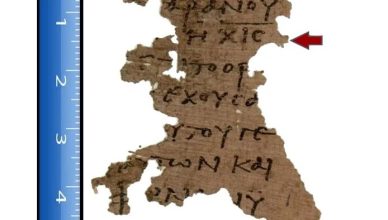 1
2
3
4
ΑΝΟΥ
Η ΧΙϹ
ΤΟΟΡ
ΕΧΟΥϹΑ
ΥΤΟΥ ΓΕ
ΤΩΝ ΚΑΙ